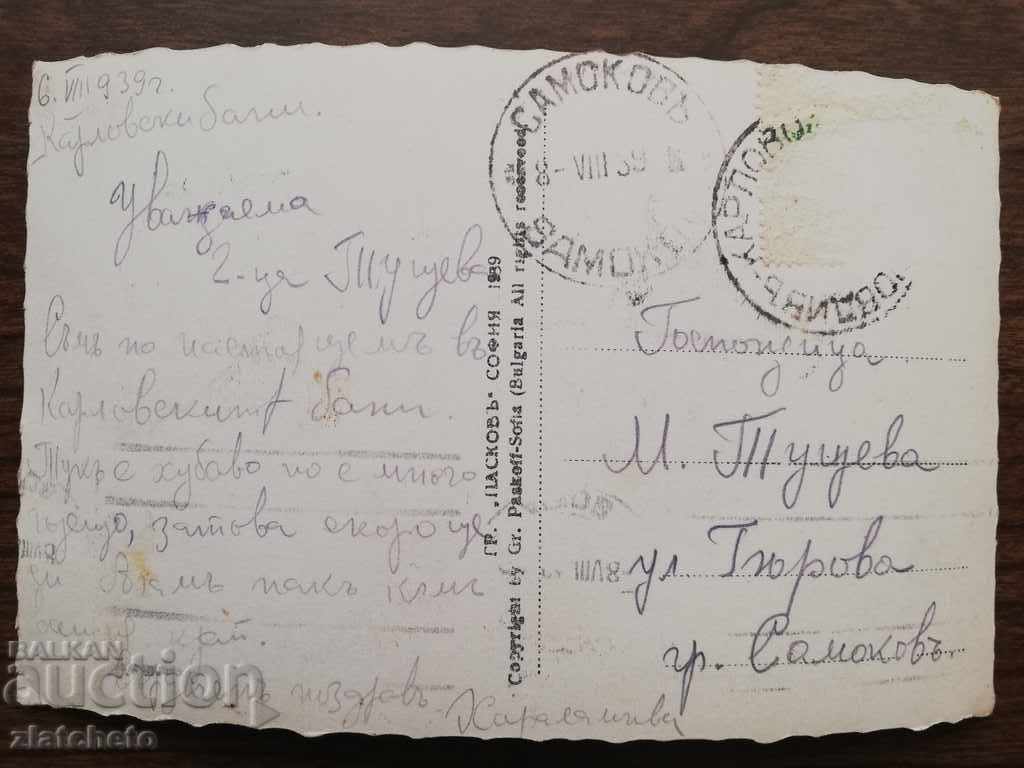 6. VIII 939 г.
Карловски бани.
Уважаема
г-ца Тущева
Съмь по настоящемъ въ
Карловскитѣ бани.
Тукъ е хубаво но е много
горещо, затова скоро ще
дамъ пакъ към
край.
поздравъ
Харалампиева
ГР. „ПАСКОВЪ" СОФИЯ 1939
Copyright by Gr. Paskoff-Sofia (Bulgaria All rights reserved)
САМОКОВЪ
8-VIII 39
SAMOKOV
КАРЛОВО
ПЛОВДИВЪ
Госпожица
М. Тущева
ул. Гюрова
гр. Самоковъ.
8VIII
BALKAN
auction
zlatcheto